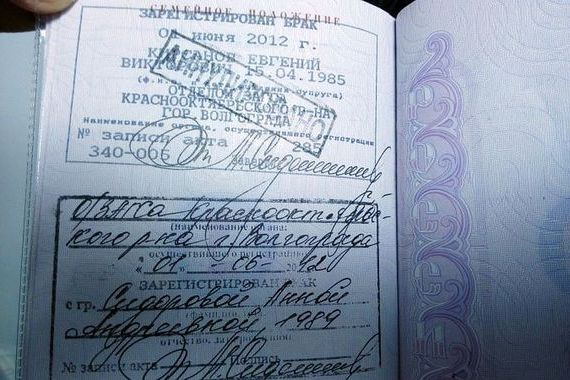 СЕМЕЙНОЕ ПОЛОЖЕНИЕ
ЗАРЕГИСТРИРОВАН БРАК
01 июня 2012 г.
ЕВГЕНИЙ
15.04.1985
ОТДЕЛОМ
КРАСНООКТЯБРЬСКОГО Р-НА
ГОР. ВОЛГОГРАДА
Наименование органа, осуществившего регистрацию
№ записи акта 285
340-006
ОЗАГСа Краснооктябрьс-
кого р-на г. Волгограда
(наименование органа,
осуществившего регистрацию)
"01" 06
ЗАРЕГИСТРИРОВАН БРАК
с гр. Сидоровой Анной
Андреевной, 1989
отчество, дата рождения)
№ записи акта Подпись